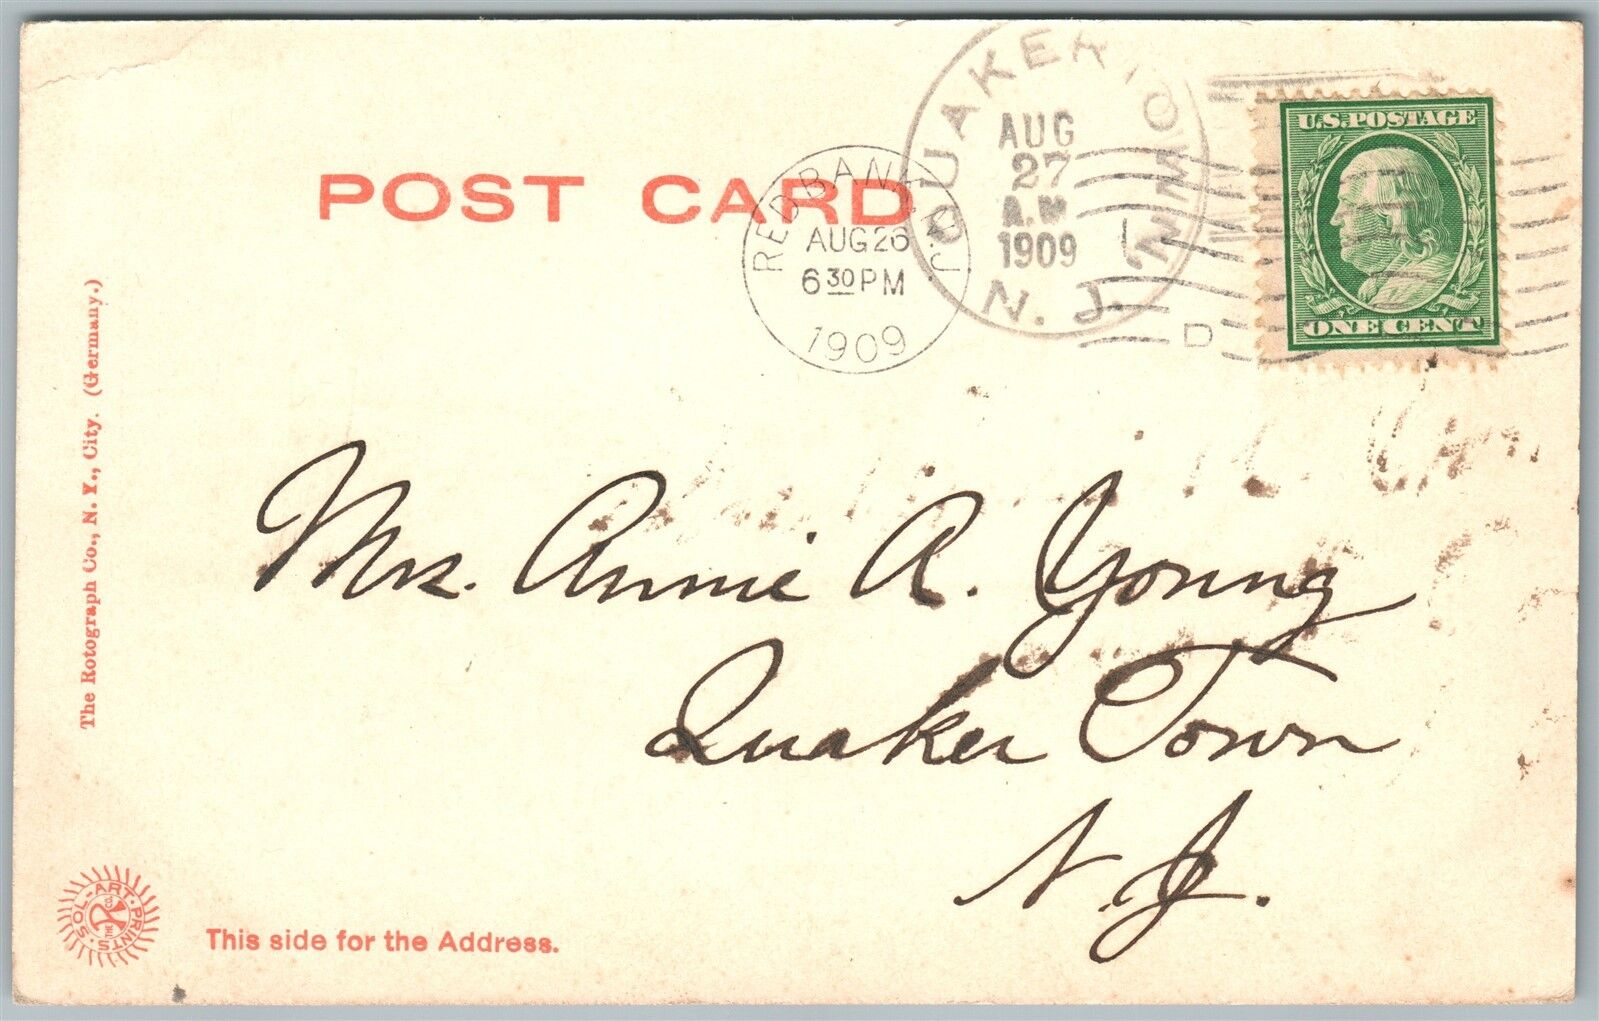 POST CARD
RED BANK, N.J.
AUG 26
6 30 PM
1909
QUAKERTOWN
AUG
27
A.M
1909
N. J.
D
U.S. POSTAGE
ONE CENT
Mrs. Annie A. Young
Quaker Town
N. J.
The Rotograph Co., N. Y., City. (Germany.)
SOL-ART PRINTS
This side for the Address.